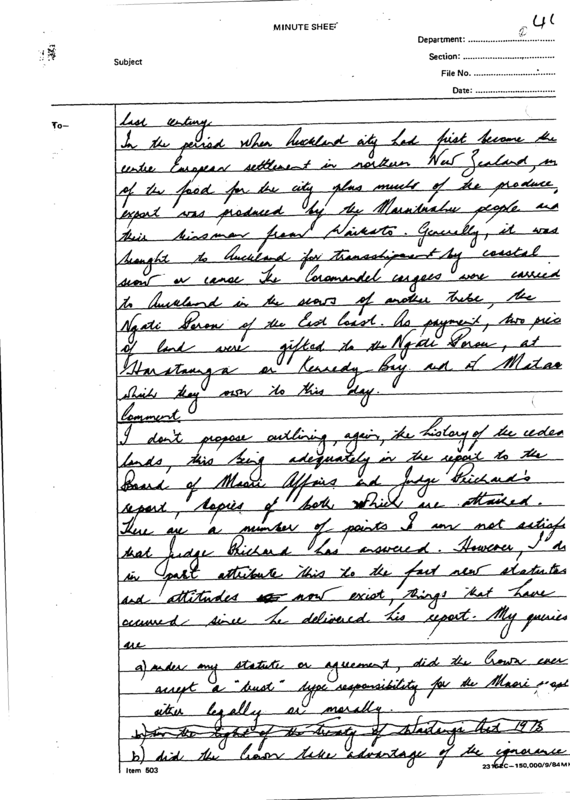 41
MINUTE SHEET
Department: ................................
Subject
Section: ................................
File No. ................................
Date: ................................
To–
last century.
In the period when Auckland city had first become the
centre European settlement in northern New Zealand, m
of the food for the city plus much of the produce,
export was produced by the Marutuahu people and
their kinsman from Waikato. Generally, it was
brought to Auckland for transshipment by coastal
scow or canoe The Coromandel cargoes were carried
to Auckland in the scows of another tribe, the
Ngati Porou of the East Coast. As payment, two piec
of land were gifted to the Ngati Porou, at
Harataunga or Kennedy Bay and at Matao
which they own to this day.
Comment
I don't propose outlining, again, the history of the ceded
lands, this being adequately in the report to the
Board of Maori Affairs and Judge Prichard's
report, copies of both which are attached.
There are a number of points I am not satisfi
that Judge Prichard has answered. However, I do
in part attribute this to the fact new statutes
and attitudes now exist, things that have
occurred since he delivered his report. My queries
are
a) under any statute or agreement, did the Crown ever
accept a "trust" type responsibility for the Maori peopl
either legally or morally.
b) in the light of the Treaty of Waitangi Act 1975
b) did the Crown take advantage of the ignorance
Item 503
23162C–150,000/9/84MK